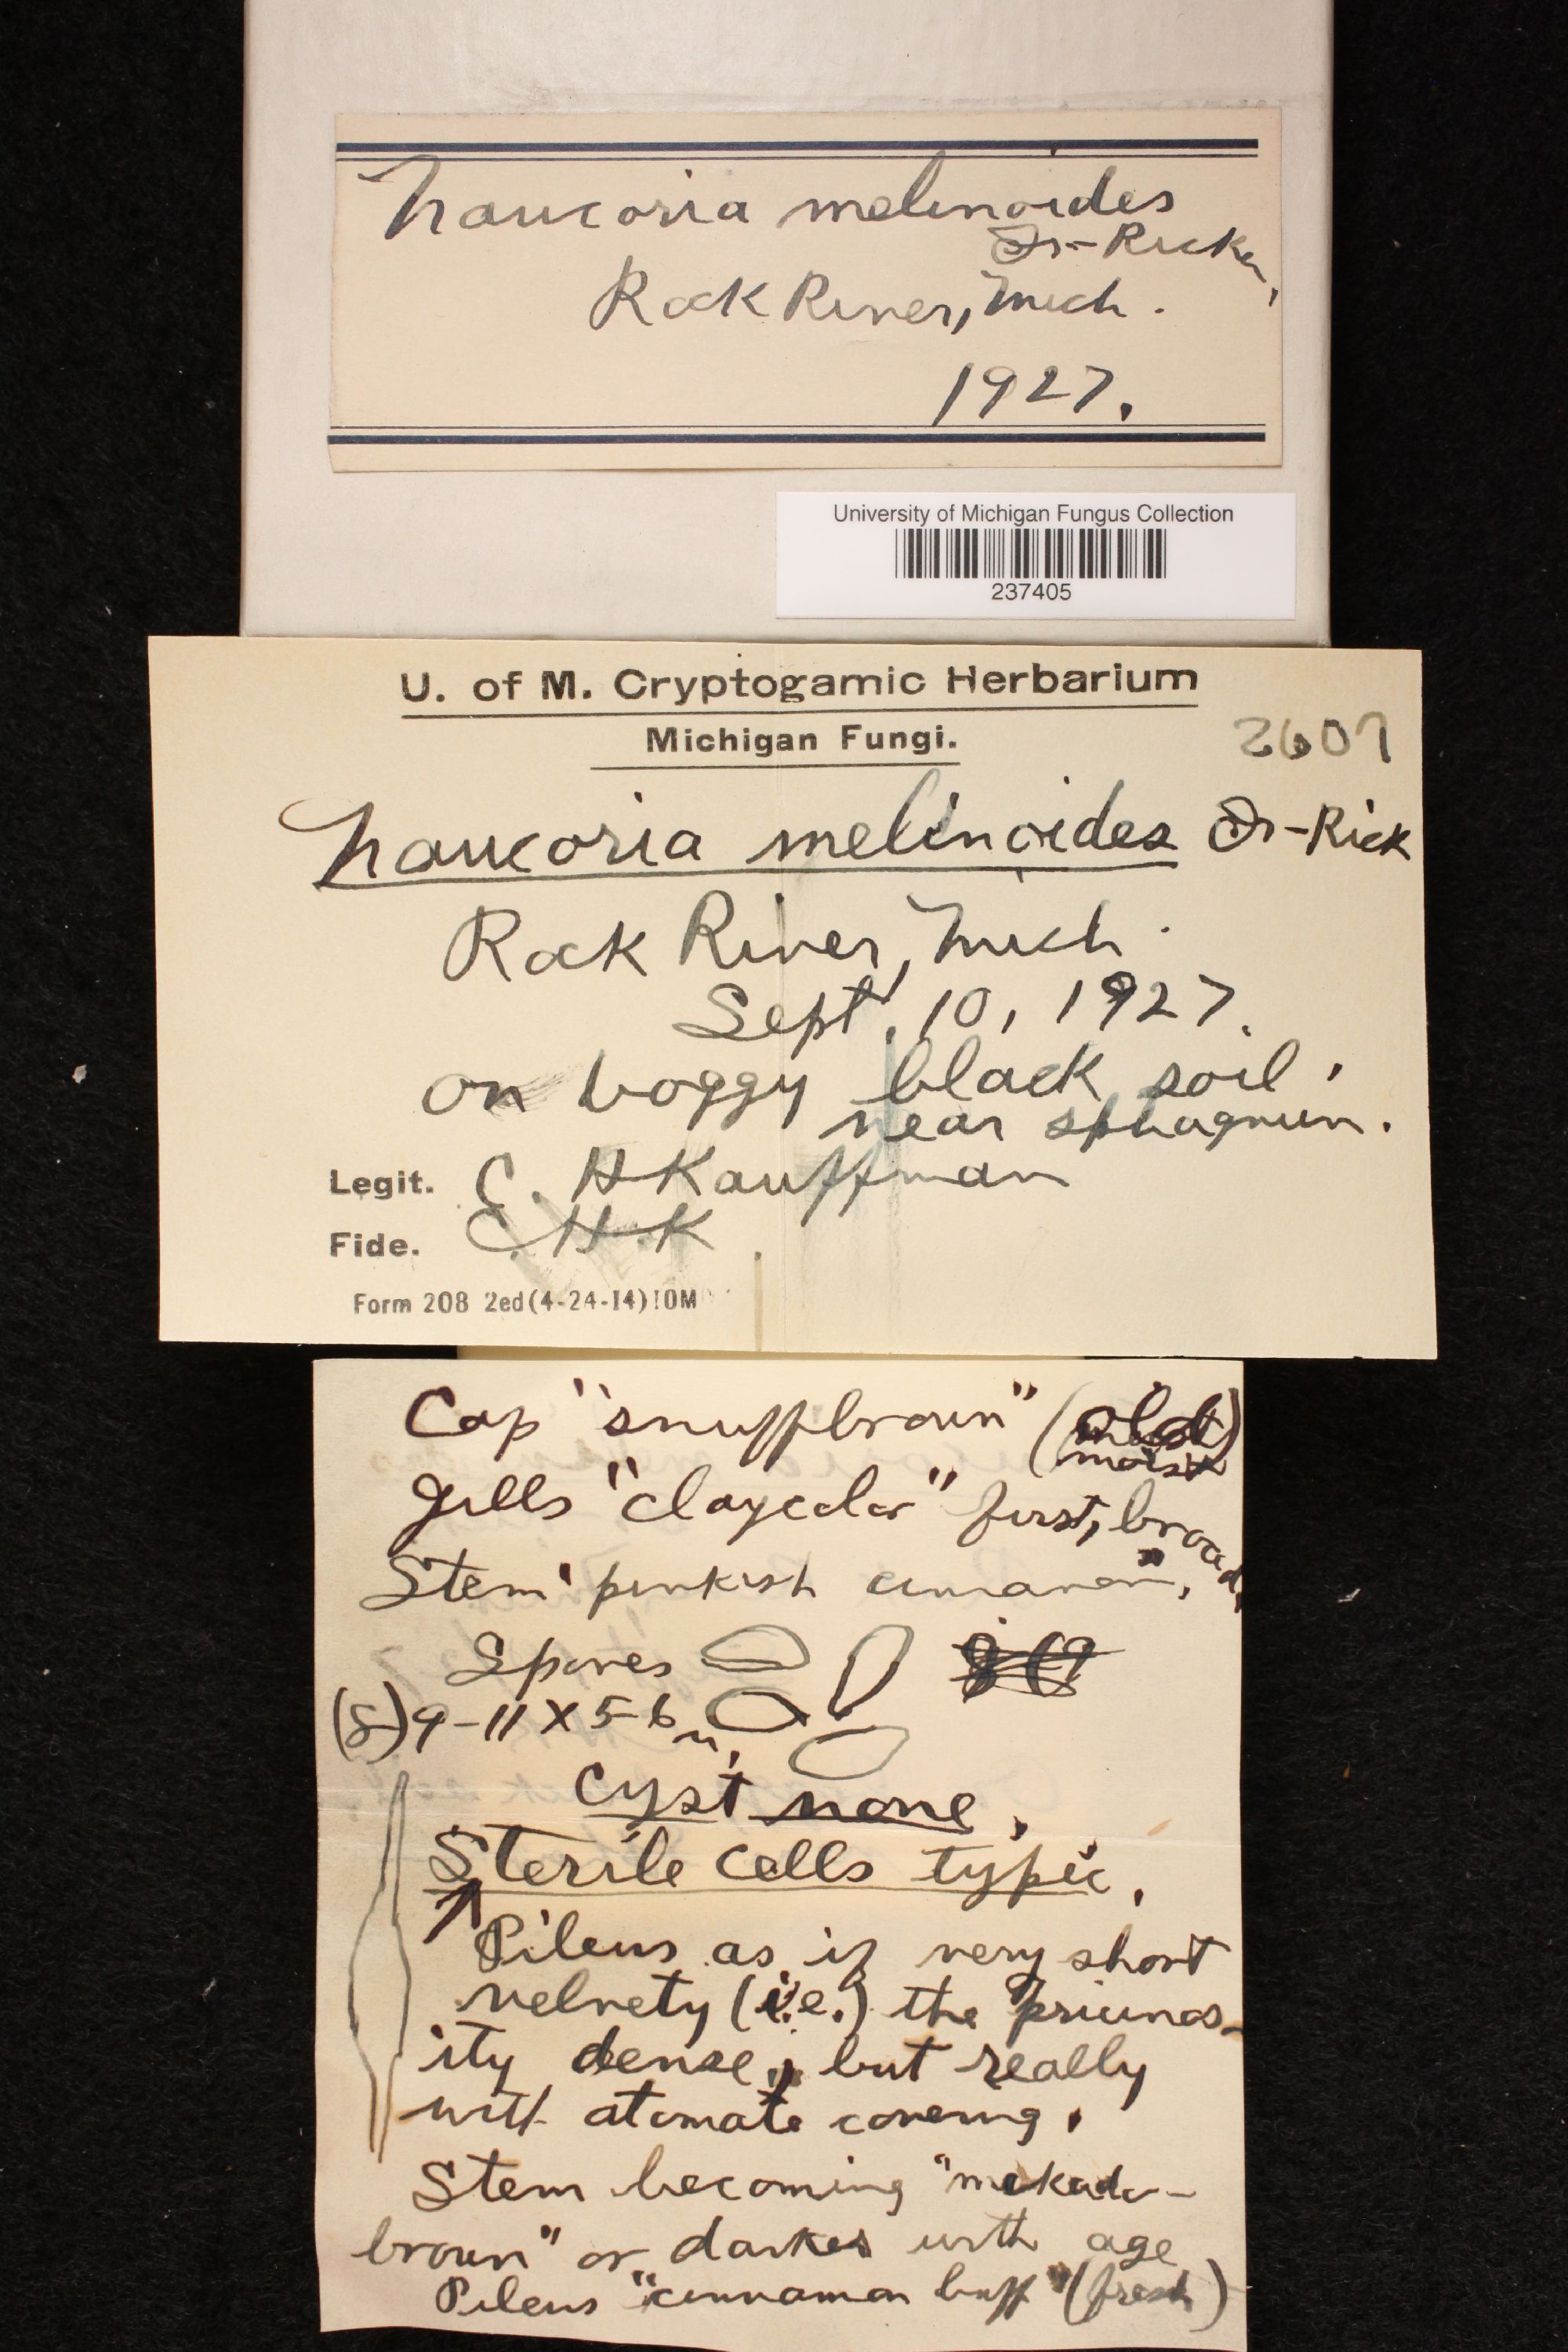 Naucoria melinoides
Fr-Ricken,
Rock River, Mich.
1927.
University of Michigan Fungus Collection
237405
U. of M. Cryptogamic Herbarium
Michigan Fungi.
2607
Naucoria melinoides Fr-Rick
Rock River, Mich.
Sept. 10, 1927.
on boggy black soil,
near sphagnum.
Legit. C. H Kauffman
Fide. C.H.K.
Form 208 2ed(4-24-14)10M
Cap "snuffbrown" (old)
moist
Gills "claycolor" first, broad,
Stem "pinkish cinnamon",
Spores
(8) 9-11 X 5-6 u,
Cyst none,
Sterile cells typic,
Pileus as if very short
velvety (i.e.) the pruinos-
ity dense, but really
with atomate covering.
Stem becoming "mikado-
brown" or darker with age
Pileus "cinnamon buff" (fresh)